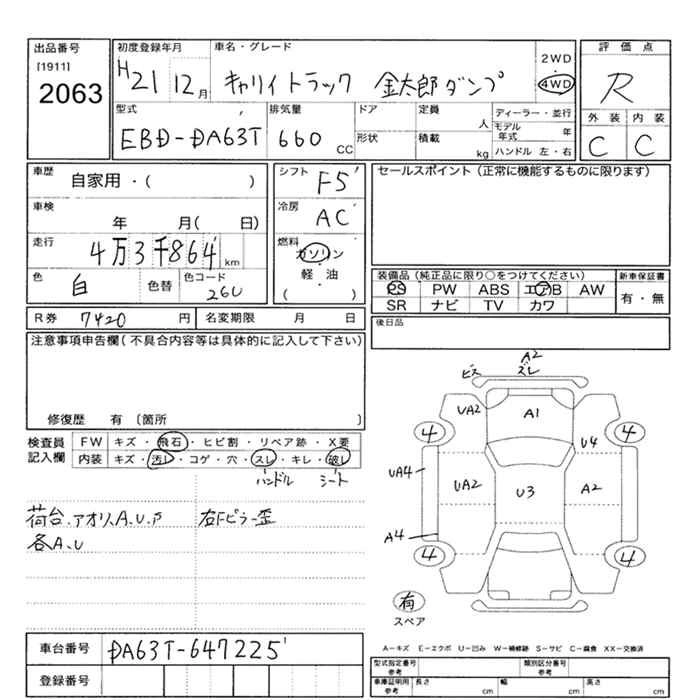 出品番号
[1911]
2063
初度登録年月
H21 12月
車名・グレード
キャリイトラック 金太郎ダンプ
2WD
4WD
評価点
R
外装 内装
C C
型式
EBD-DA63T
排気量
660 CC
ドア
形状
定員 人
積載 kg
ディーラー・並行
モデル年式 年
ハンドル 左・右
車歴
自家用・( )
車検
年 月( 日)
走行
4万3千864 km
色
白
色替
色コード
26U
シフト
F5
冷房
AC
燃料
ガソリン
・
軽油
( )
セールスポイント(正常に機能するものに限ります)
装備品(純正品に限り○をつけてください)
PS PW ABS エアB AW
SR ナビ TV カワ
新車保証書
有・無
R券 7420 円 名変期限 月 日
後日品
注意事項申告欄(不具合内容等は具体的に記入して下さい)
修復歴 有 〔箇所 〕
検査員記入欄
FW キズ・飛石・ヒビ割・リペア跡・X要
内装 キズ・汚レ・コゲ・穴・スレ・キレ・破レ
ハンドル シート
荷台.アオリ.A.U.P
各A.U
右Fピラー歪
A2
ビス ズレ
UA2 A1
4 4
U4
UA4 UA2 U3 A2
A4
4 4
有
スペア
A-キズ E-エクボ U-凹み W-補修跡 S-サビ C-腐食 XX-交換済
車台番号 DA63T-647225
登録番号
型式指定番号 参考
類別区分番号 参考
車庫証明用 参考 長さ cm 幅 cm 高さ cm